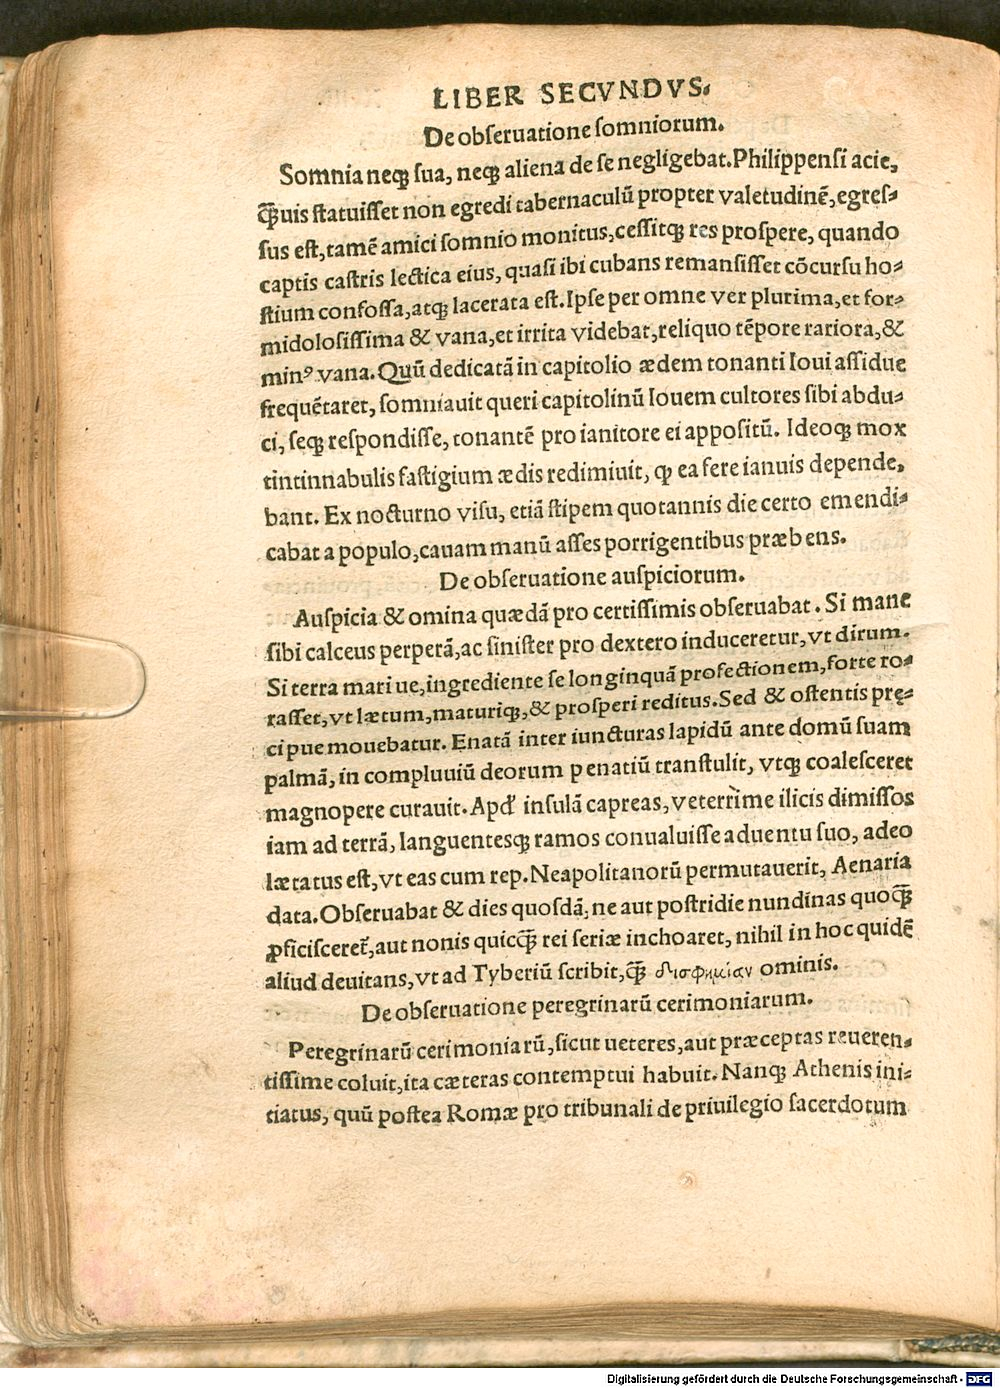 LIBER SECVNDVS.
De obſeruatione ſomniorum.
Somnia neqꝫ ſua, neqꝫ aliena de ſe negligebat. Philippenſi acie,
ꝙ̃uis ſtatuiſſet non egredi tabernaculū propter valetudinē, egreſ⸗
ſus eſt, tamē amici ſomnio monitus, ceſſitqꝫ res proſpere, quando
captis caſtris lectica eius, quaſi ibi cubans remanſiſſet cōcurſu ho⸗
ſtium confoſſa, atqꝫ lacerata eſt. Ipſe per omne ver plurima, et for⸗
midoloſiſſima & vana, et irrita videbat, reliquo tēpore rariora, &
minꝰ vana. Quū dedicatā in capitolio ædem tonanti Ioui aſſidue
frequētaret, ſomniauit queri capitolinū Iouem cultores ſibi abdu⸗
ci, ſeqꝫ reſpondiſſe, tonantē pro ianitore ei appoſitū. Ideoqꝫ mox
tintinnabulis faſtigium ædis redimiuit, ꝙ ea fere ianuis depende,
bant. Ex nocturno viſu, etiā ſtipem quotannis die certo emendi⸗
cabat a populo, cauam manū aſſes porrigentibus præbens.
De obſeruatione auſpiciorum.
Auſpicia & omina quædā pro certiſſimis obſeruabat. Si mane
ſibi calceus perperā, ac ſiniſter pro dextero induceretur, vt dirum.
Si terra mari ue, ingrediente ſe longinquā profectionem, forte ro⸗
raſſet, vt lætum, maturiqꝫ, & proſperi reditus. Sed & oſtentis pre̜⸗
cipue mouebatur. Enatā inter iuncturas lapidū ante domū ſuam
palmā, in compluuiū deorum penatiū tranſtulit, vtqꝫ coaleſceret
magnopere curauit. Apđ inſulā capreas, veterrime ilicis dimiſſos
iam ad terrā, languentesqꝫ ramos conualuiſſe aduentu ſuo, adeo
lætatus eſt, vt eas cum rep. Neapolitanorū permutauerit, Aenaria
data. Obſeruabat & dies quoſdā, ne aut poſtridie nundinas quoꝙ̃
ꝓficiſceret᷑, aut nonis quicꝙ̃ rei ſeriæ inchoaret, nihil in hoc quidē
aliud deuitans, vt ad Tyberiū ſcribit, ꝙ̃ δισφημίαν ominis.
De obſeruatione peregrinarū cerimoniarum.
Peregrinarū cerimoniarū, ſicut ueteres, aut præceptas reueren⸗
tiſſime coluit, ita cæteras contemptui habuit. Nanqꝫ Athenis ini⸗
tiatus, quū poſtea Romæ pro tribunali de priuilegio ſacerdotum
Digitalisierung gefördert durch die Deutsche Forschungsgemeinschaft - DFG